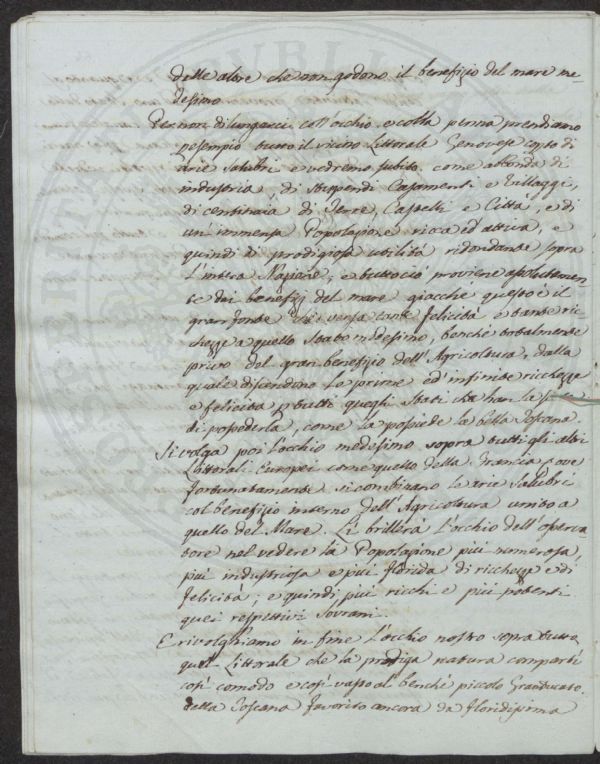 delle altre che non godono il benefizio del mare me-
desimo
Per non dilungarci coll'occhio, e colla penna prendiamo
p esempio tutto il vicino Littorale Genovese capo di
arie salubri e vedremo subito come abbonda di
industria, di Stupendi Casamenti e Villaggi,
di centinaia di Terre, Castelli e Città, e di
un immensa Popolazione ricca ed attiva, e
quindi di prodigiosa utilità ridondante sopra
l'intera Nazione, e tuttociò proviene assolutamen-
te dai benefizj del mare giacchè questo è il
gran fonte che versa tante felicità e tante ric-
chezze a quello Stato medesimo, benchè totalmente
privo del gran benefizio dell'Agricoltura, dalla
quale discendono le prime ed infinite ricchezze
e felicità p tutti quegli Stati che han la
di possederla, come la possiede la bella Toscana.
Si volga poi l'occhio medesimo sopra tutti gli altri
Littorali Europei come quello della Francia, ove
fortunatamente si combinano le arie Salubri
col benefizio interno dell'Agricoltura unito a
quello del Mare. Li brillerà l'occhio dell'osserva-
tore nel vedere la Popolazione più numerosa,
più industriosa e più florida di ricchezze e di
felicità; e quindi più ricchi e più potenti
quei respettivi Sovrani.
E rivolghiamo in fine l'occhio nostro sopra tutto
quel Littorale che la prodiga natura compartì
così comodo e così vasto al benchè piccolo Granducato
della Toscana favorito ancora da floridissima